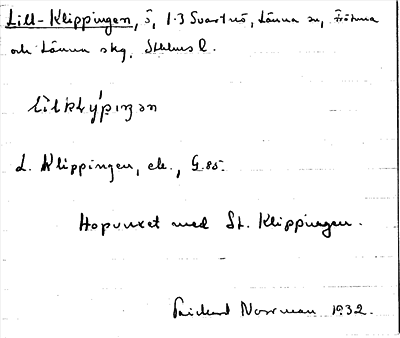 Lill-Klippingen, ö, 1:3 Svartnö, Länna sn, Frötuna
och Länna skg, Sthlms l.
lìlklýpıŋən
L. Klippingen, ek., G. 85.
Hopvuxet med St. Klippingen.
Rickard Norrman 1932.